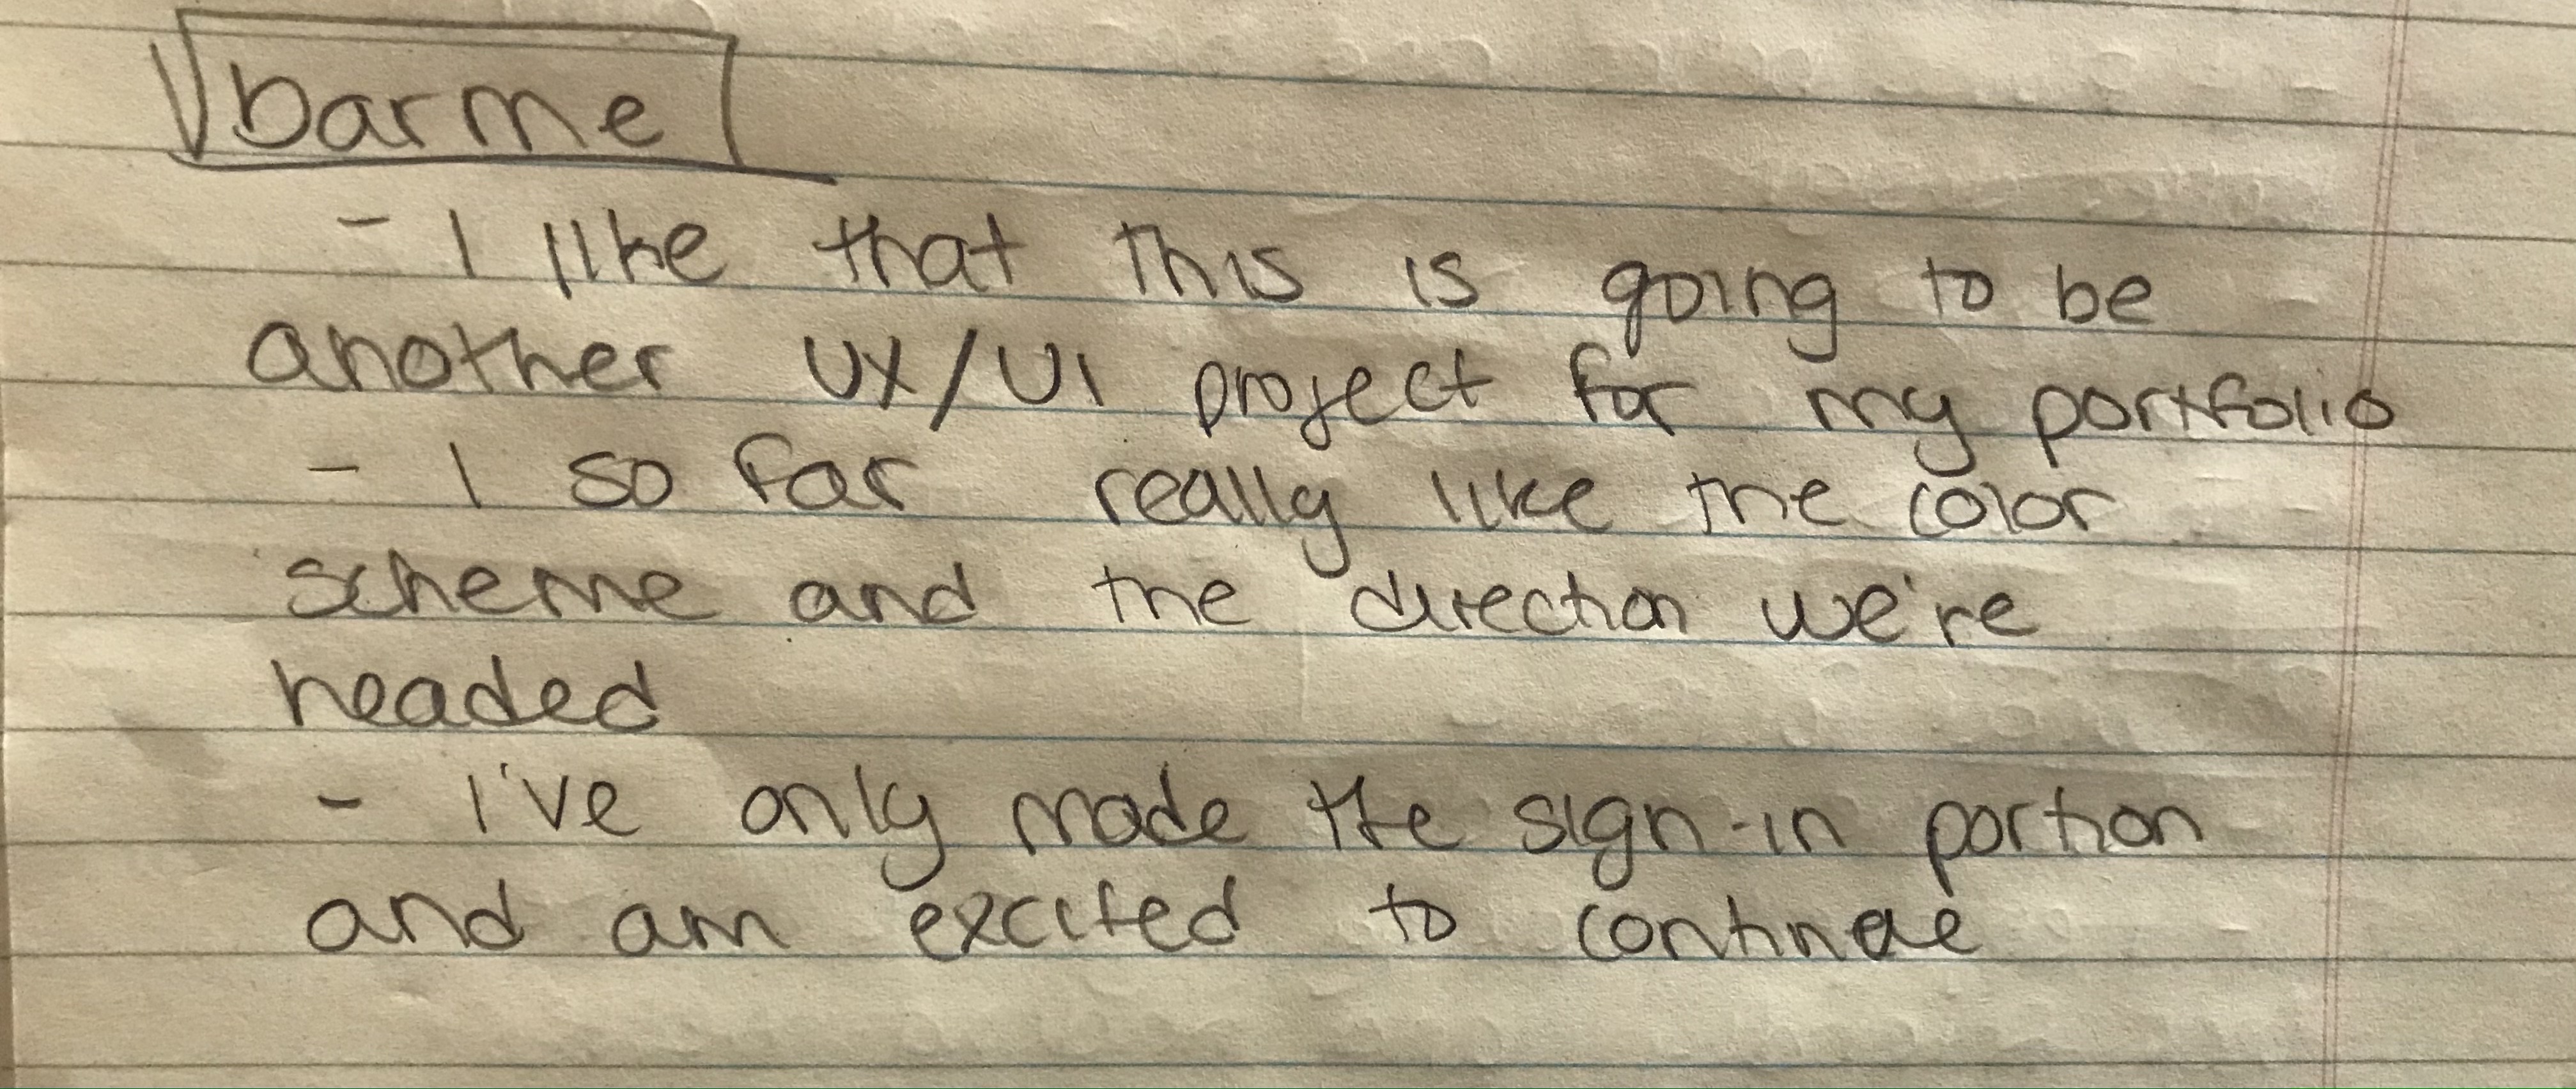 barme
- I like that this is going to be
another UX/UI project for my portfolio
- I so far really like the color
scheme and the direction we're
headed
- I've only made the sign-in portion
and am excited to continue